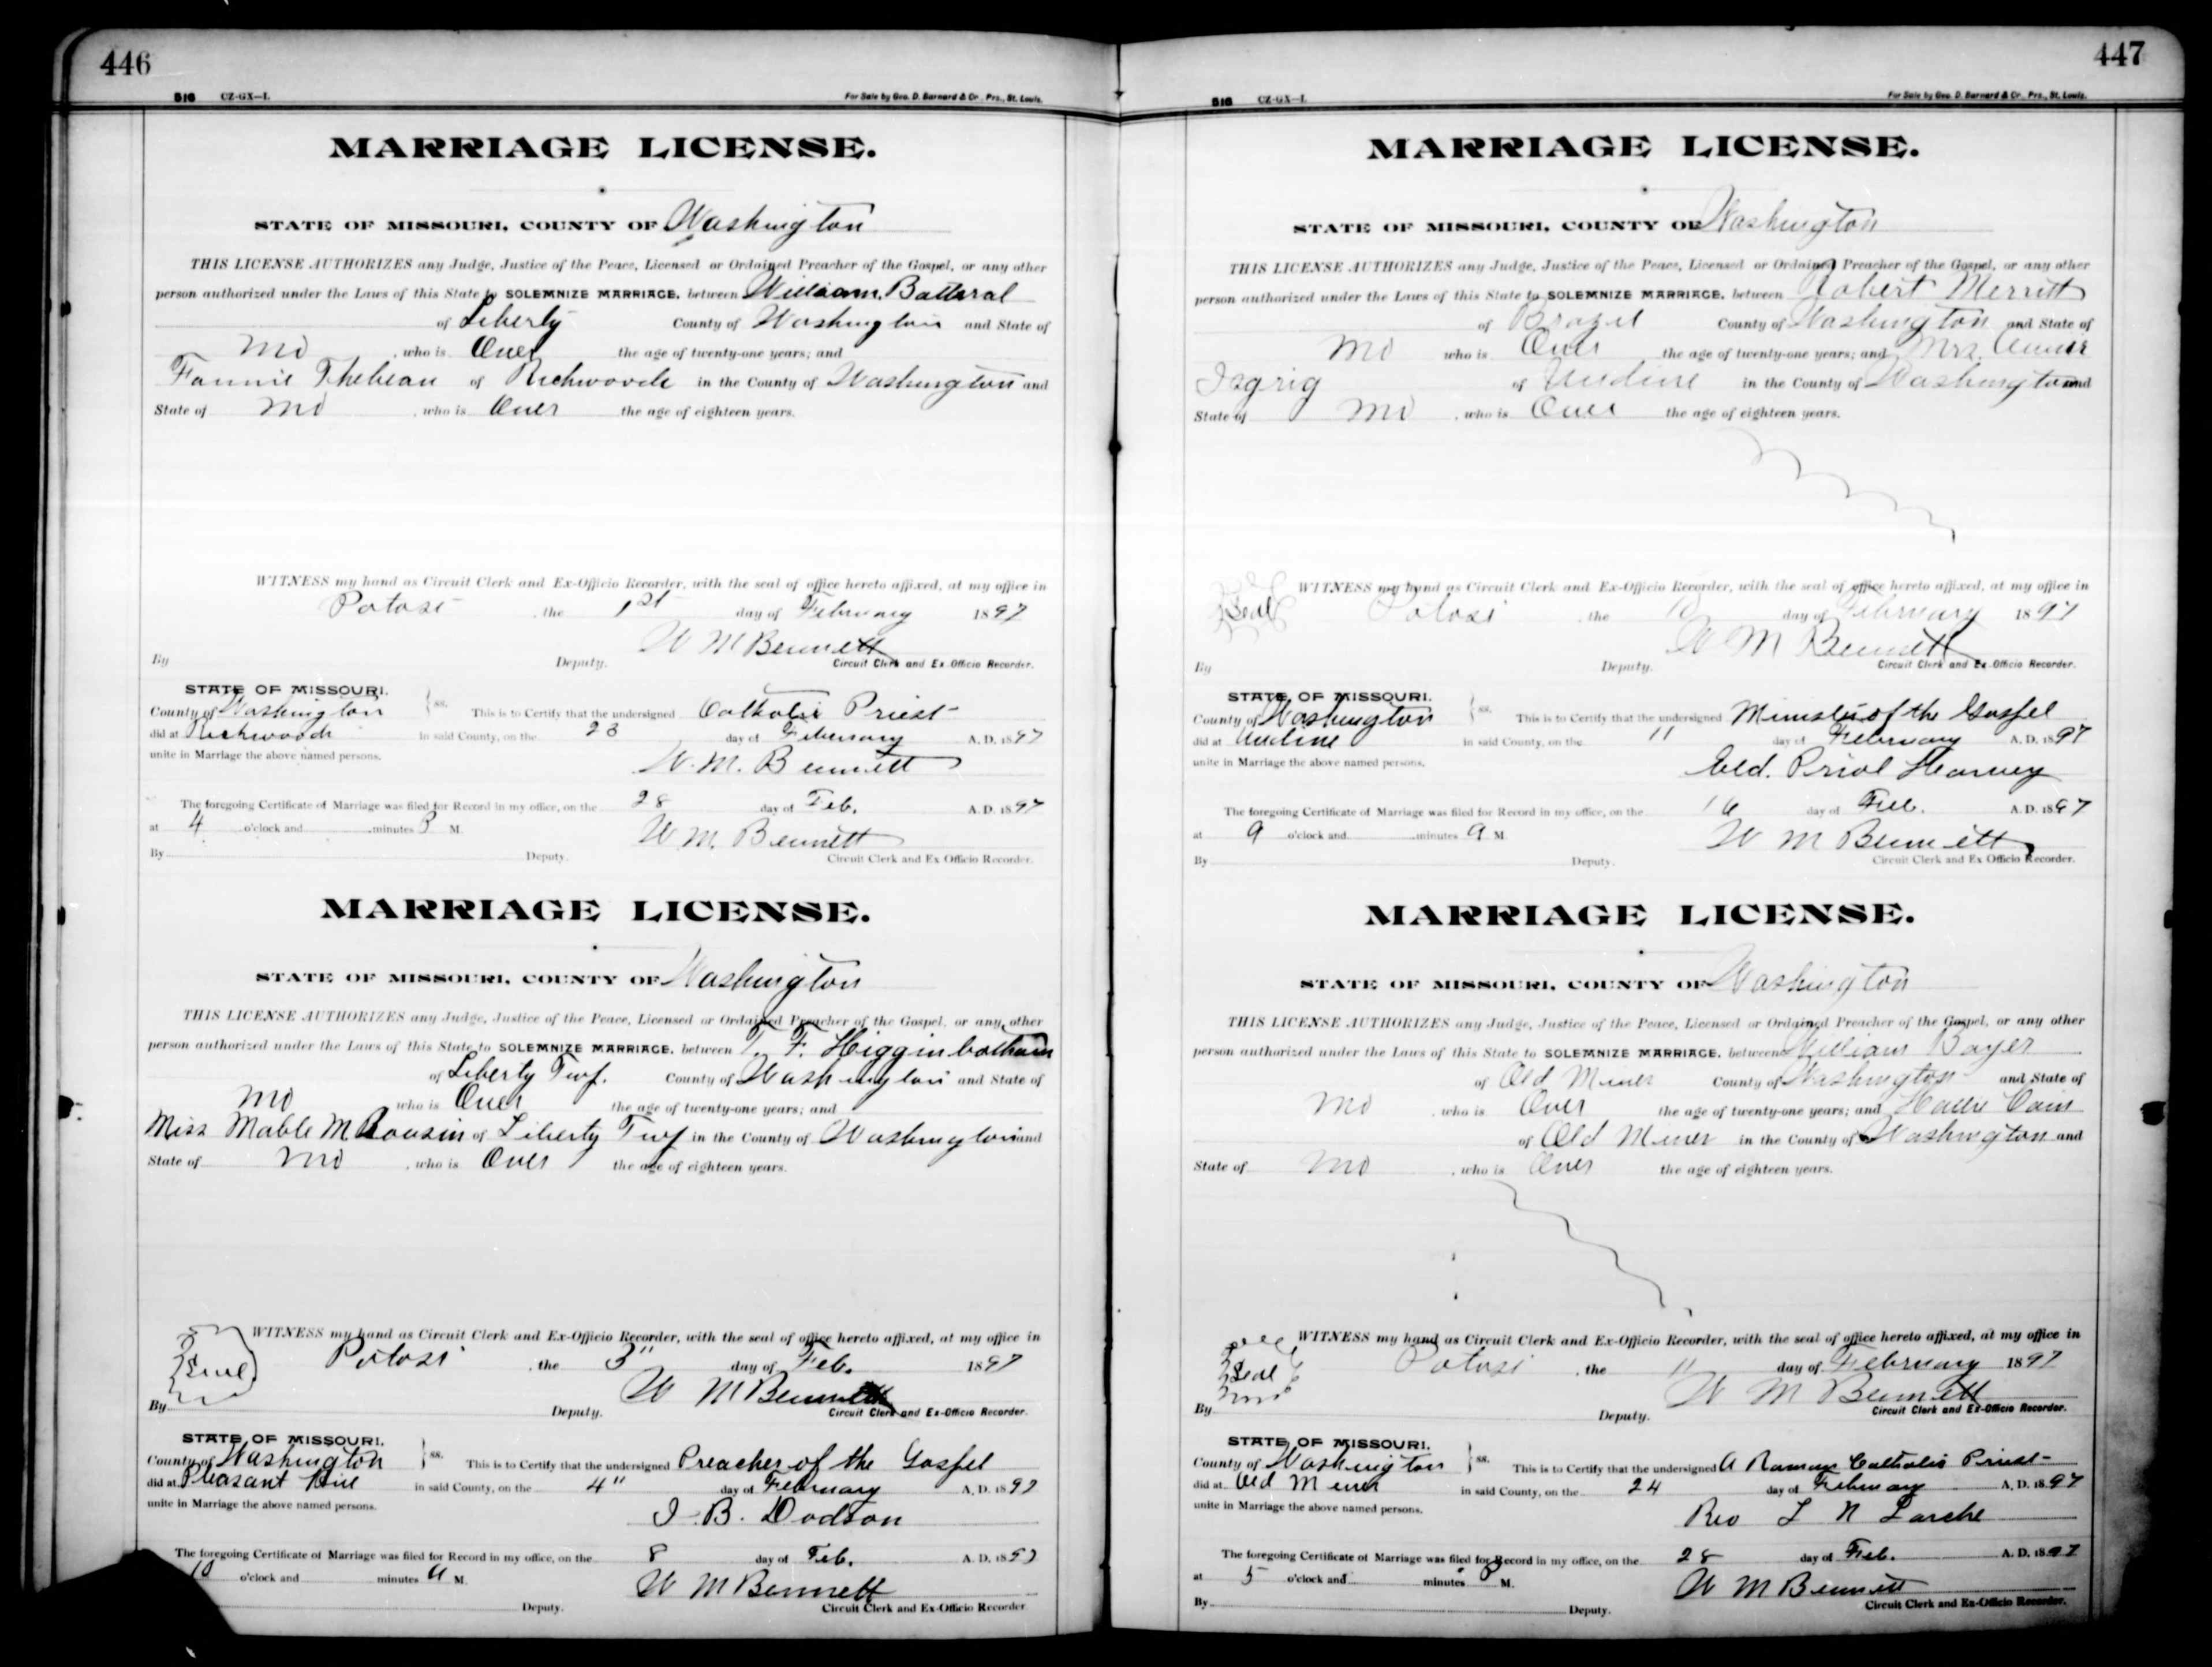 446
516 CZ-GX—L
For Sale by Geo. D. Barnard & Co., Prs., St. Louis.
MARRIAGE LICENSE.
STATE OF MISSOURI, COUNTY OF Washington
THIS LICENSE AUTHORIZES any Judge, Justice of the Peace, Licensed or Ordained Preacher of the Gospel, or any other
person authorized under the Laws of this State to SOLEMNIZE MARRIAGE, between William Batteral
of Liberty County of Washington and State of
Mo , who is Over the age of twenty-one years; and
Fannie Thebeau of Richwoods in the County of Washington and
State of Mo , who is Over the age of eighteen years.
WITNESS my hand as Circuit Clerk and Ex-Officio Recorder, with the seal of office hereto affixed, at my office in
Potosi , the 1st day of February 1897
W M Bennett
By Deputy. Circuit Clerk and Ex-Officio Recorder.
STATE OF MISSOURI.
County of Washington ss. This is to Certify that the undersigned Catholic Priest
did at Richwoods in said County, on the 23 day of February A. D. 1897
unite in Marriage the above named persons. W. M. Bennett
The foregoing Certificate of Marriage was filed for Record in my office, on the 28 day of Feb. A. D. 1897
at 4 o'clock and minutes P M. W. M. Bennett
By Deputy. Circuit Clerk and Ex Officio Recorder.
MARRIAGE LICENSE.
STATE OF MISSOURI, COUNTY OF Washington
THIS LICENSE AUTHORIZES any Judge, Justice of the Peace, Licensed or Ordained Preacher of the Gospel, or any other
person authorized under the Laws of this State to SOLEMNIZE MARRIAGE, between T. F. Higginbotham
of Liberty Twp. County of Washington and State of
Mo who is Over the age of twenty-one years; and
Miss Mable M Rousin of Liberty Twp in the County of Washington and
State of Mo , who is Over the age of eighteen years.
WITNESS my hand as Circuit Clerk and Ex-Officio Recorder, with the seal of office hereto affixed, at my office in
Seal Potosi , the 3" day of Feb. 1897
W M Bennett
By Deputy. Circuit Clerk and Ex-Officio Recorder.
STATE OF MISSOURI.
County of Washington ss. This is to Certify that the undersigned Preacher of the Gospel
did at Pleasant Hill in said County, on the 4" day of February A. D. 1897
unite in Marriage the above named persons. J. B. Dodson
The foregoing Certificate of Marriage was filed for Record in my office, on the 8 day of Feb. A. D. 1897
10 o'clock and minutes a M. W M Bennett
Deputy. Circuit Clerk and Ex-Officio Recorder
447
516 CZ-GX—L
For Sale by Geo. D. Barnard & Co., Prs., St. Louis.
MARRIAGE LICENSE.
STATE OF MISSOURI, COUNTY OF Washington
THIS LICENSE AUTHORIZES any Judge, Justice of the Peace, Licensed or Ordained Preacher of the Gospel, or any other
person authorized under the Laws of this State to SOLEMNIZE MARRIAGE, between Robert Merritt
of Brazil County of Washington and State of
Mo who is Over the age of twenty-one years; and Mrs.
Isgrig of Undine in the County of Washington and
State of Mo , who is Over the age of eighteen years.
WITNESS my hand as Circuit Clerk and Ex-Officio Recorder, with the seal of office hereto affixed, at my office in
Seal Potosi , the 10 day of February 1897
W M Bennett
By Deputy. Circuit Clerk and Ex-Officio Recorder.
STATE OF MISSOURI.
County of Washington ss. This is to Certify that the undersigned Minister of the Gospel
did at Undine in said County, on the 11 day of February A. D. 1897
unite in Marriage the above named persons. Eld. Priol Harvey
The foregoing Certificate of Marriage was filed for Record in my office, on the 16 day of Feb. A. D. 1897
at 9 o'clock and minutes a M. W M Bennett
By Deputy. Circuit Clerk and Ex Officio Recorder.
MARRIAGE LICENSE.
STATE OF MISSOURI, COUNTY OF Washington
THIS LICENSE AUTHORIZES any Judge, Justice of the Peace, Licensed or Ordained Preacher of the Gospel, or any other
person authorized under the Laws of this State to SOLEMNIZE MARRIAGE, between William Boyer
of Old Mines County of Washington and State of
Mo , who is Over the age of twenty-one years; and Hallie Cain
of Old Mines in the County of Washington and
State of Mo , who is Over the age of eighteen years.
WITNESS my hand as Circuit Clerk and Ex-Officio Recorder, with the seal of office hereto affixed, at my office in
Seal Potosi , the 11 day of February 1897
W M Bennett
By Deputy. Circuit Clerk and Ex-Officio Recorder.
STATE OF MISSOURI.
County of Washington ss. This is to Certify that the undersigned A Roman Catholic Priest
did at Old Mines in said County, on the 24 day of February A. D. 1897
unite in Marriage the above named persons. Rev L N Larche
The foregoing Certificate of Marriage was filed for Record in my office, on the 28 day of Feb. A. D. 1897
at 5 o'clock and minutes P M. W M Bennett
By Deputy. Circuit Clerk and Ex-Officio Recorder.